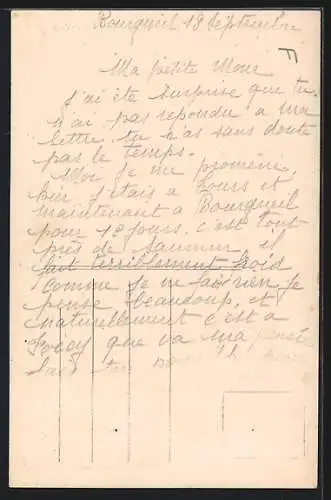 Bourgueil 18 Septembre
Ma petite
J'ai été surprise que tu
n'ai pas repondu a ma
lettre. tu n'as sans doute
pas le temps.
Moi je me promène,
hier j'étais a Tours et
maintenant a Bourgueil
pour 12 jours. c'est tout
près de Saumur, il
fait terriblement froid
comme je n'ai rien je
pense beaucoup, et
naturellement c'est a
que va ma pensée